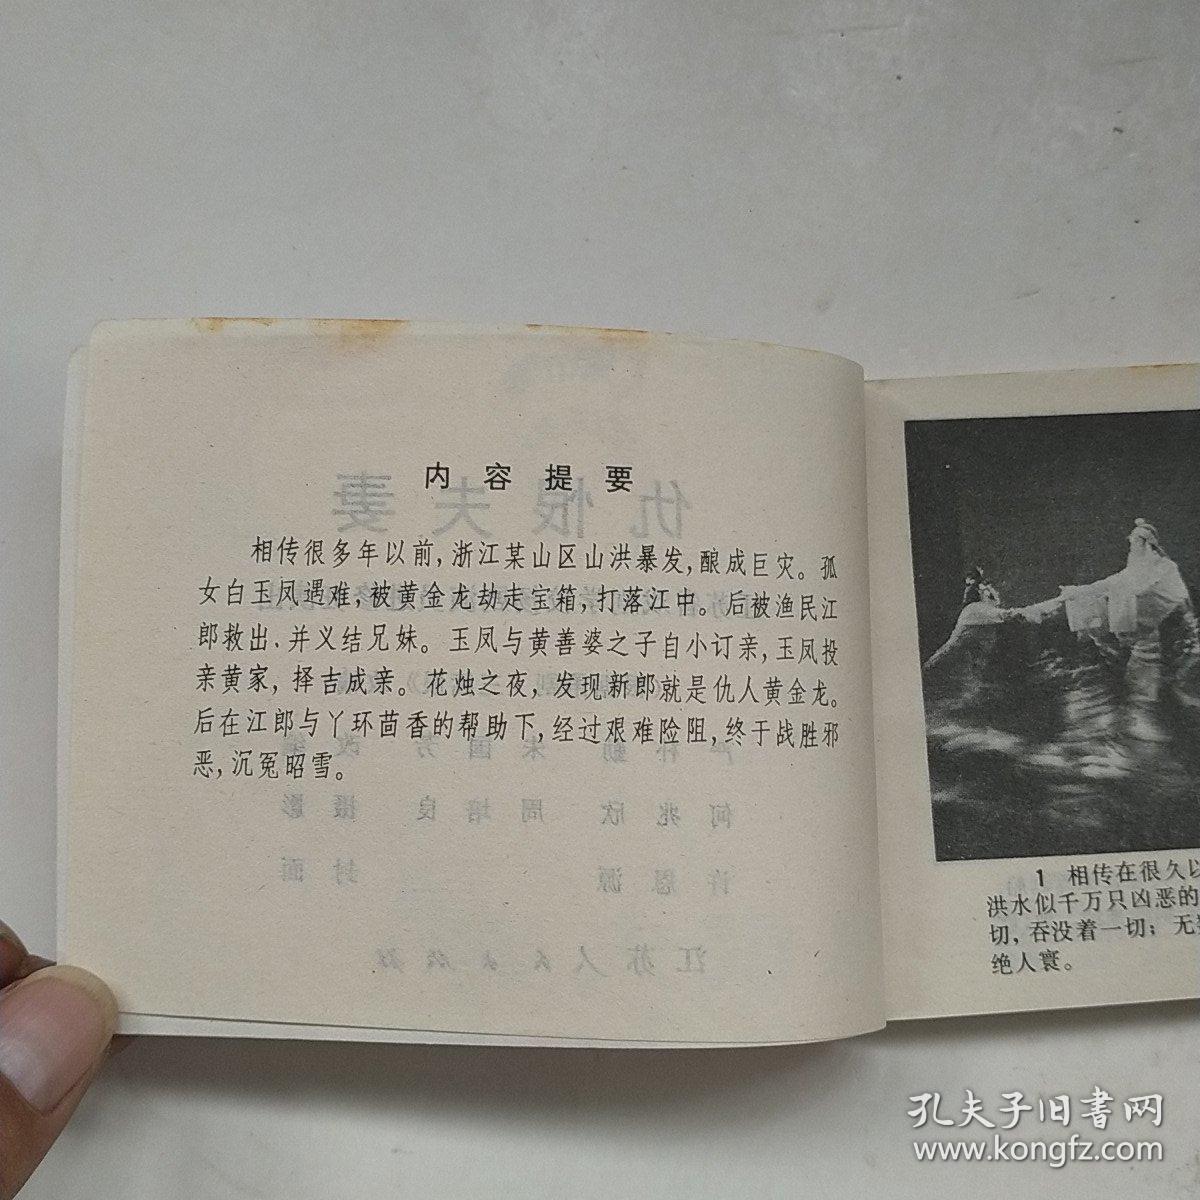 内容提要
相传很多年以前,浙江某山区山洪暴发,酿成巨灾。孤
女白玉凤遇难,被黄金龙劫走宝箱,打落江中。后被渔民江
郎救出、并义结兄妹。玉凤与黄善婆之子自小订亲,玉凤投
亲黄家,择吉成亲。花烛之夜,发现新郎就是仇人黄金龙。
后在江郎与丫环茴香的帮助下,经过艰难险阻,终于战胜邪
恶,沉冤昭雪。
仇恨夫妻
何兆欣 周培良 摄影
许恩源 封面
江苏人民出版社
1 相传在很久以
洪水似千万只凶恶的
切,吞没着一切;无
绝人寰。
孔夫子旧书网
www.kongfz.com